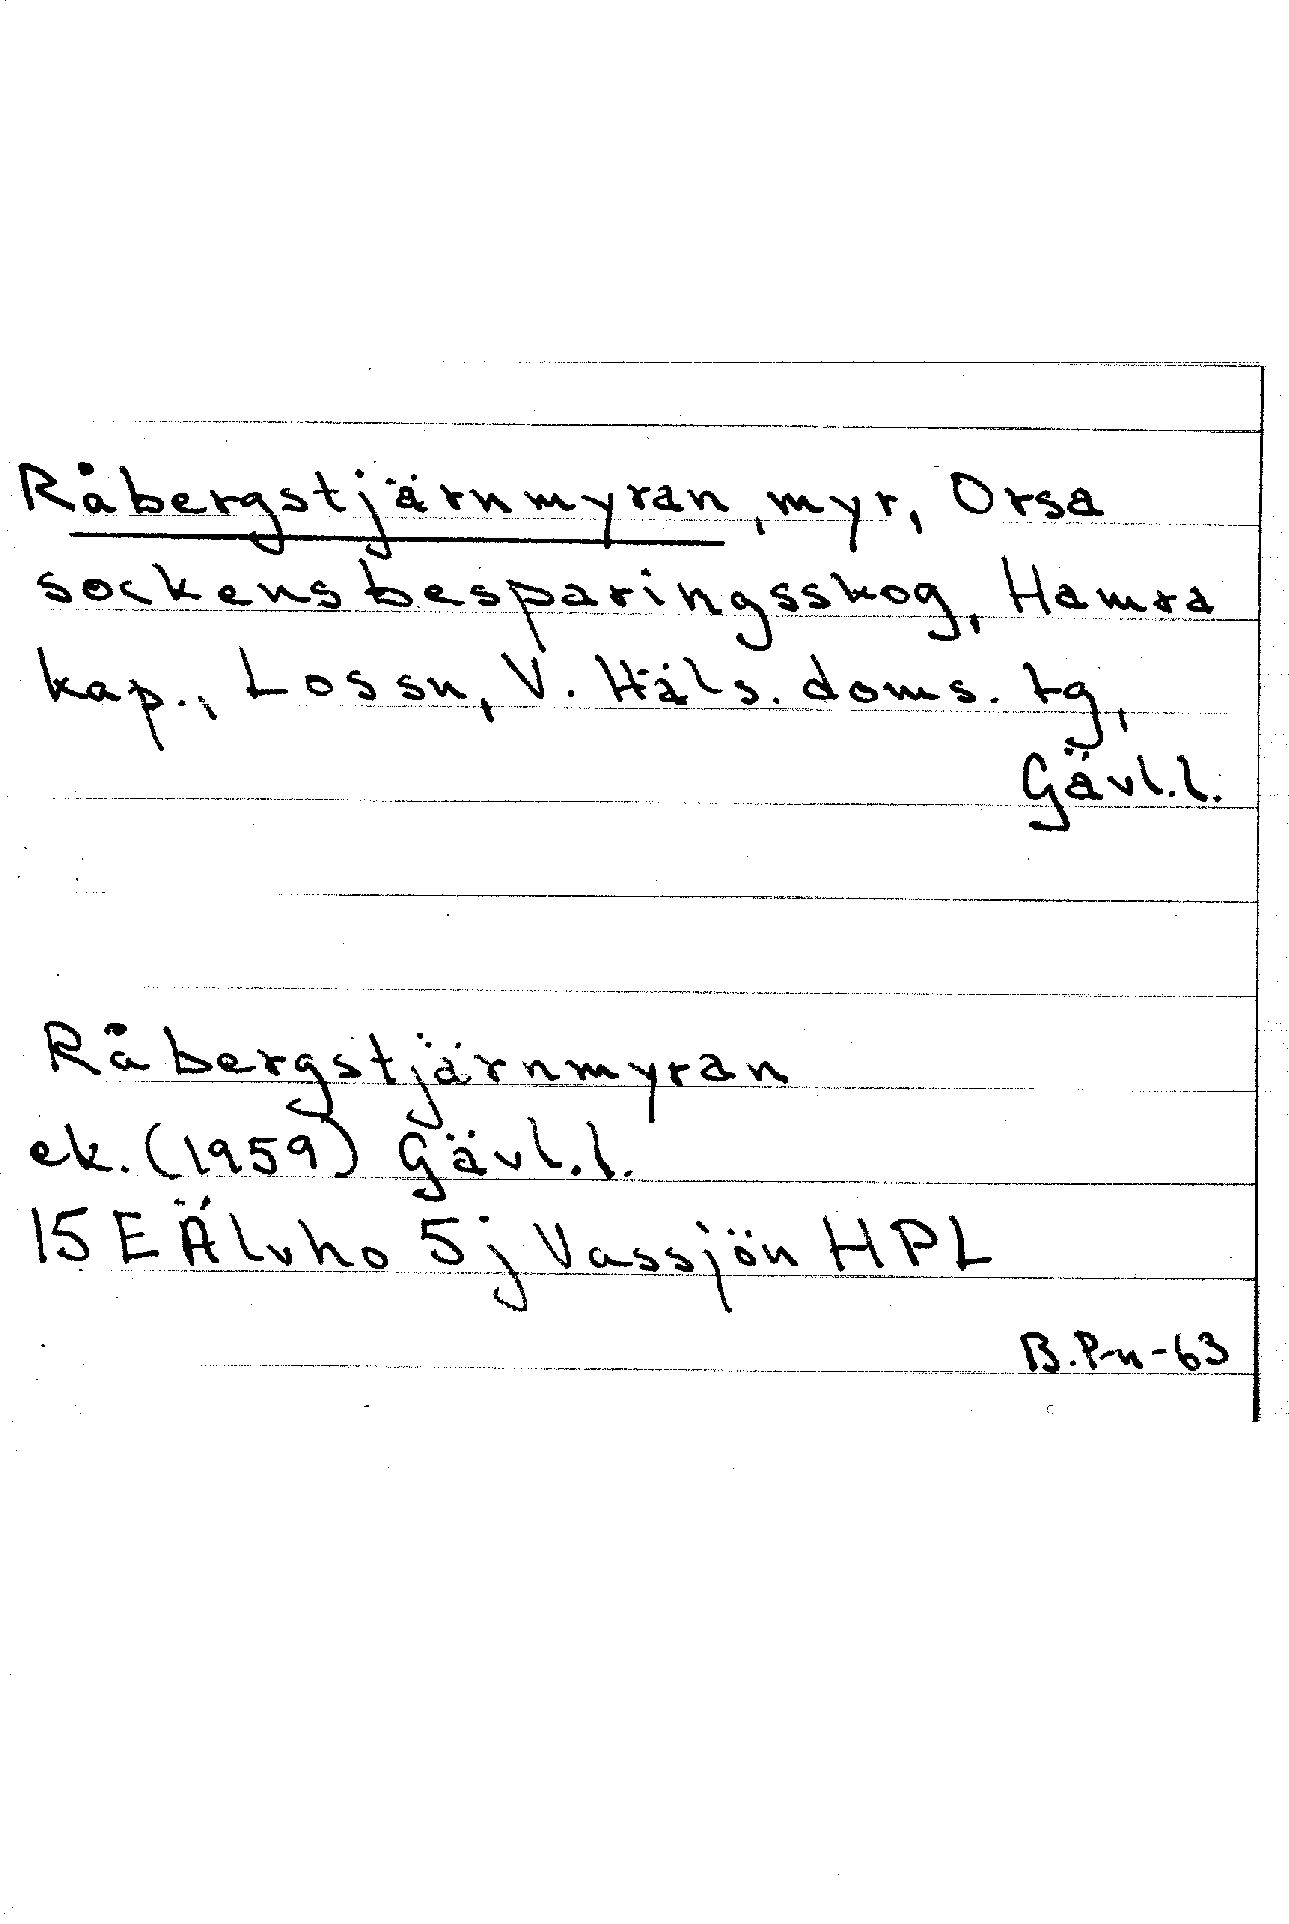 Råbergstjärnmyran, myr, Orsa
sockens besparingsskog, Hamra
kap., Lossn, V. Häls. doms. tg,
Gävl.l.
Råbergstjärnmyran
ek. (1959) Gävl.l.
15 E Älvho 5j Vassjön HPL
B.P-n-63